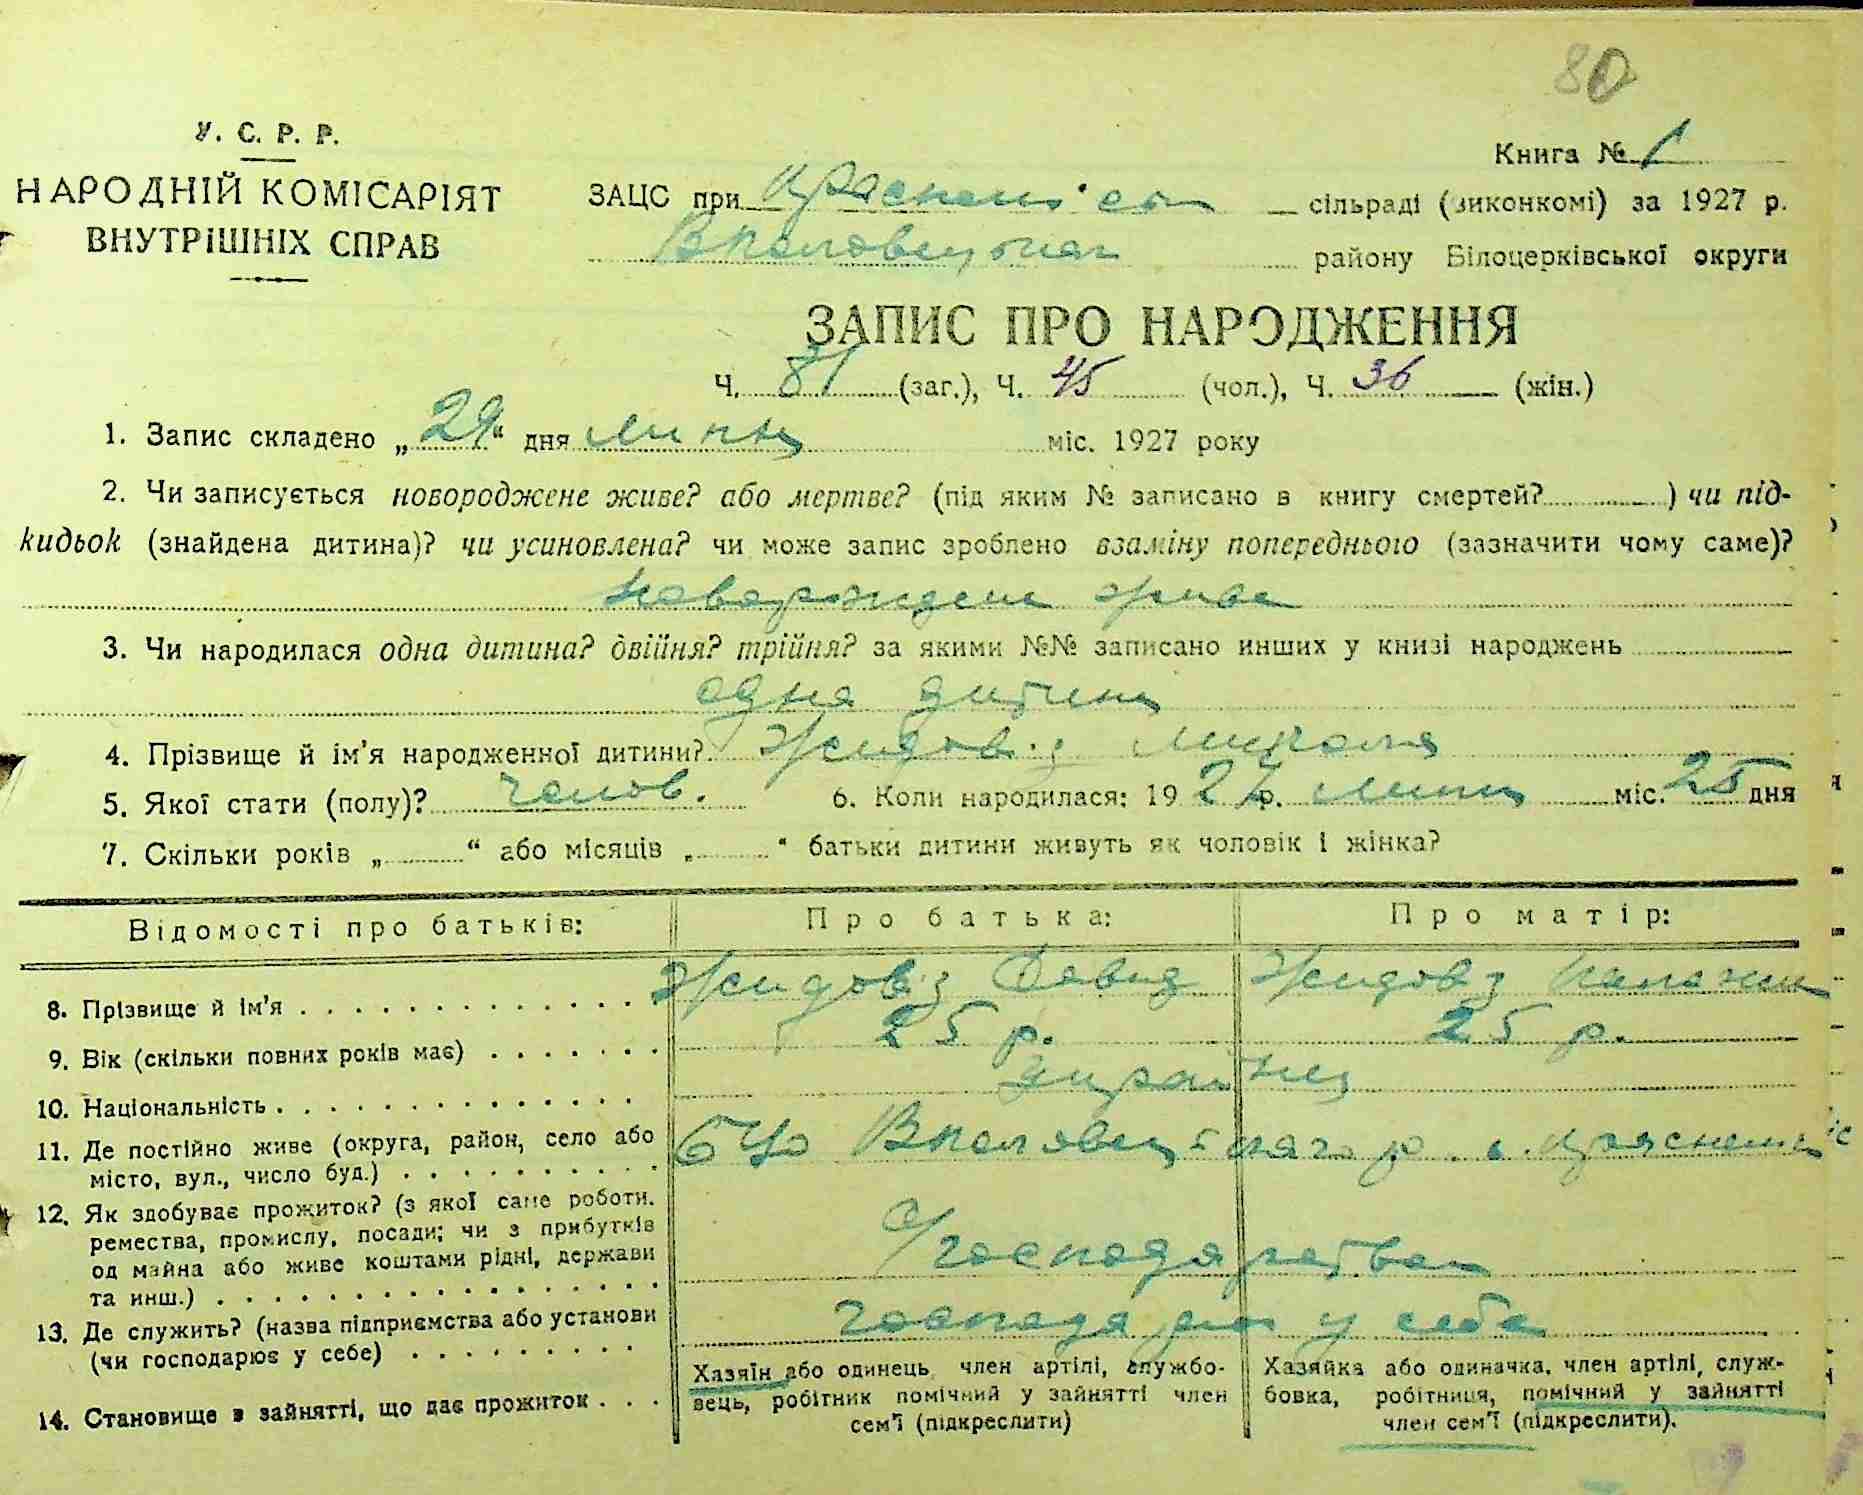 80
У. С. Р. Р.
НАРОДНІЙ КОМІСАРІЯТ
ВНУТРІШНІХ СПРАВ
Книга № 1
ЗАЦС при сільраді (виконкомі) за 1927 р.
району Білоцерківської округи
ЗАПИС ПРО НАРОДЖЕННЯ
Ч. 81 (заг.), Ч. 45 (чол.), Ч. 36 (жін.)
1. Запис складено „29“ дня липня міс. 1927 року
2. Чи записується новороджене живе? або мертве? (під яким № записано в книгу смертей? ) чи під-
кидьок (знайдена дитина)? чи усиновлена? чи може запис зроблено взаміну попереднього (зазначити чому саме)?
живе
3. Чи народилася одна дитина? двійня? трійня? за якими №№ записано инших у книзі народжень
одна дитина
4. Прізвище й ім'я народженної дитини? Микола
5. Якої стати (полу)? чолов. 6. Коли народилася: 1927 р. липня міс. 25 дня
7. Скільки років „ “ або місяців „ “ батьки дитини живуть як чоловік і жінка?
Відомості про батьків: Про батька: Про матір:
8. Прізвище й ім'я Давид
9. Вік (скільки повних років має) 25 р. 25 р.
10. Національність
11. Де постійно живе (округа, район, село або
місто, вул., число буд.) БЦо
12. Як здобуває прожиток? (з якої саме роботи.
ремества, промислу, посади; чи з прибутків
од майна або живе коштами рідні, держави
та инш.)
13. Де служить? (назва підприємства або установи
(чи господарює у себе) у себе
14. Становище в зайнятті, що дає прожиток
Хазяїн або одинець, член артілі, службо-
вець, робітник помічний у зайнятті член
сем'ї (підкреслити)
Хазяйка або одиначка, член артілі, служ-
бовка, робітниця, помічний у зайнятті
член сем'ї (підкреслити).